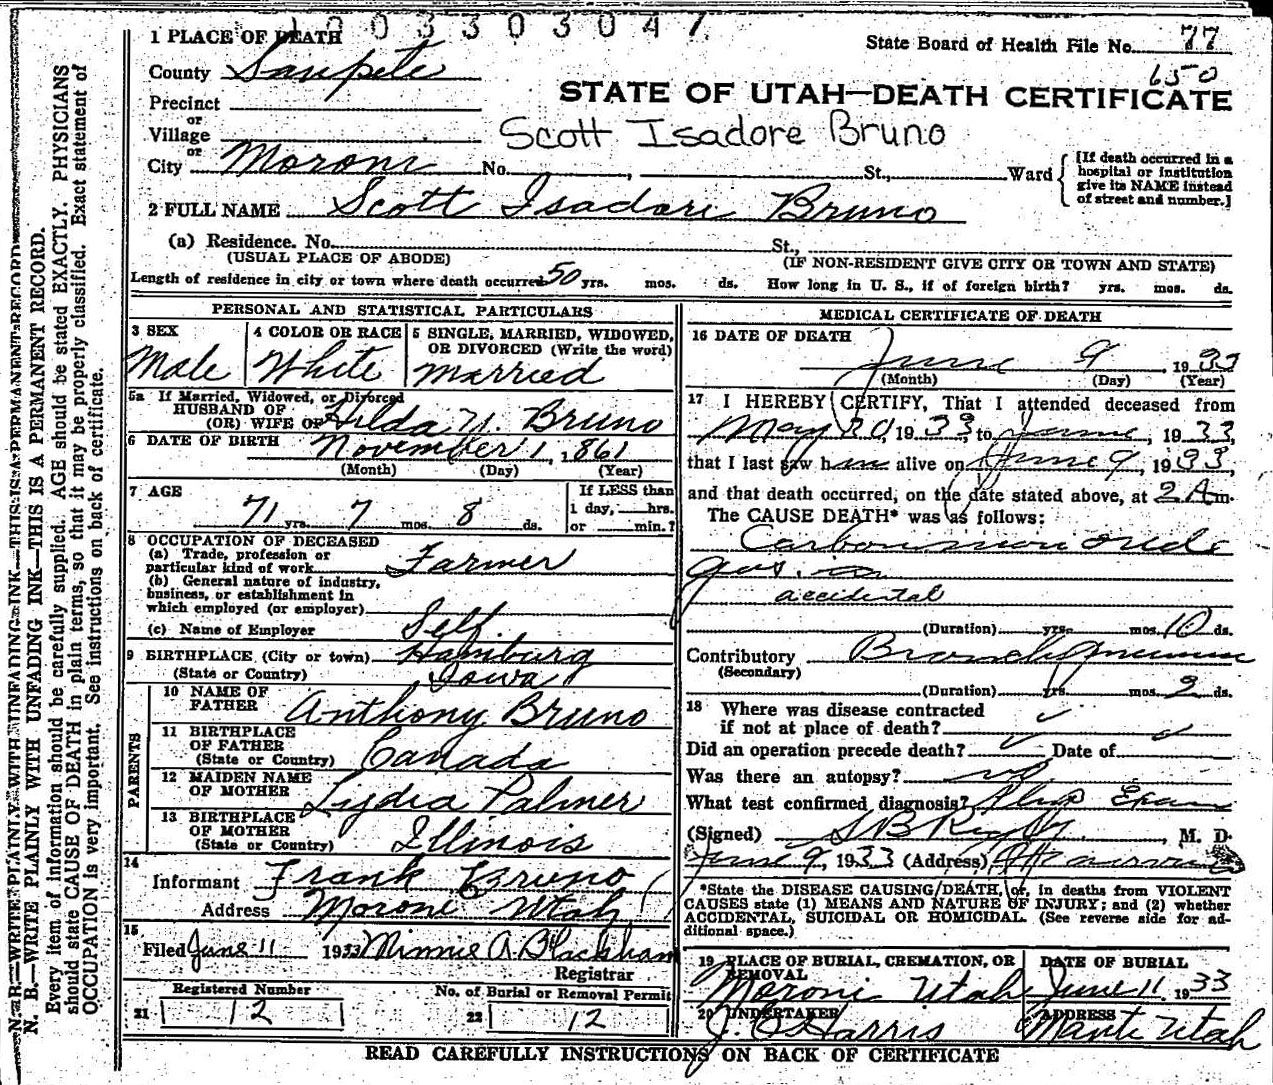 1003303047
1 PLACE OF DEATH
State Board of Health File No. 77
650
County Sanpete
STATE OF UTAH—DEATH CERTIFICATE
Precinct
or
Village
Scott Isadore Bruno
or
City Moroni No. , St., Ward
[If death occurred in a hospital or institution give its NAME instead of street and number.]
2 FULL NAME Scott Isadore Bruno
(a) Residence. No. St.,
(USUAL PLACE OF ABODE) (IF NON-RESIDENT GIVE CITY OR TOWN AND STATE)
Length of residence in city or town where death occurred 50 yrs. mos. ds. How long in U. S., if of foreign birth? yrs. mos. ds.
PERSONAL AND STATISTICAL PARTICULARS
3 SEX
Male
4 COLOR OR RACE
White
5 SINGLE, MARRIED, WIDOWED,
OR DIVORCED (Write the word)
Married
5a If Married, Widowed, or Divorced
HUSBAND OF
(OR) WIFE OF Hilda U. Bruno
6 DATE OF BIRTH November 1, 1861
(Month) (Day) (Year)
7 AGE
71 yrs. 7 mos. 8 ds.
If LESS than
1 day, hrs.
or min.?
8 OCCUPATION OF DECEASED
(a) Trade, profession or
particular kind of work Farmer
(b) General nature of industry,
business, or establishment in
which employed (or employer)
(c) Name of Employer Self
9 BIRTHPLACE (City or town) Hamburg
(State or Country) Iowa
PARENTS
10 NAME OF
FATHER Anthony Bruno
11 BIRTHPLACE
OF FATHER
(State or Country) Canada
12 MAIDEN NAME
OF MOTHER Lydia Palmer
13 BIRTHPLACE
OF MOTHER
(State or Country) Illinois
14
Informant Frank Bruno
Address Moroni Utah
15
Filed June 11 1933 Minnie A. Blackham
Registrar
Registered Number
21 12
No. of Burial or Removal Permit
22 12
MEDICAL CERTIFICATE OF DEATH
16 DATE OF DEATH
June 9, 1933
(Month) (Day) (Year)
17 I HEREBY CERTIFY, That I attended deceased from
May 30, 1933, to June, 1933,
that I last saw him alive on June 9, 1933,
and that death occurred, on the date stated above, at 2 A m.
The CAUSE DEATH* was as follows:
Carbon monoxide
gas.
accidental
(Duration) yrs. mos. 10 ds.
Contributory
(Secondary)
(Duration) yrs. mos. 2 ds.
18 Where was disease contracted
if not at place of death?
Did an operation precede death? Date of
Was there an autopsy? no
What test confirmed diagnosis? Phys Exam
(Signed) M. D.
June 9, 1933 (Address)
*State the DISEASE CAUSING DEATH, or, in deaths from VIOLENT
CAUSES state (1) MEANS AND NATURE OF INJURY; and (2) whether
ACCIDENTAL, SUICIDAL OR HOMICIDAL. (See reverse side for ad-
ditional space.)
19 PLACE OF BURIAL, CREMATION, OR
REMOVAL
Moroni Utah
DATE OF BURIAL
June 11, 1933
20 UNDERTAKER
Harris
ADDRESS
Manti Utah
READ CAREFULLY INSTRUCTIONS ON BACK OF CERTIFICATE
N. B.—WRITE PLAINLY WITH UNFADING INK—THIS IS A PERMANENT RECORD.
N. B.—WRITE PLAINLY WITH UNFADING INK—THIS IS A PERMANENT RECORD.
Every item of information should be carefully supplied. AGE should be stated EXACTLY. PHYSICIANS
should state CAUSE OF DEATH in plain terms, so that it may be properly classified. Exact statement of
OCCUPATION is very important. See instructions on back of certificate.